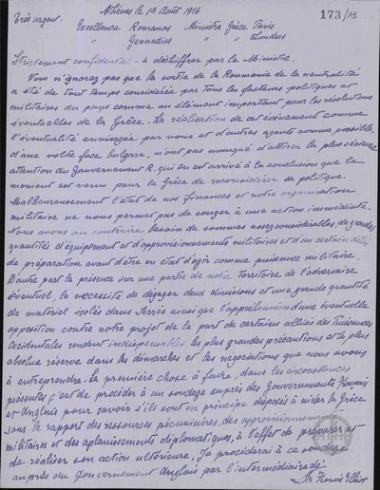 Athènes le 19 Août 1916
173/13
Très urgent. Excellences Romanos Ministre Grèce Paris
Gennadius " " Londres
Strictement confidentiel - à déchiffrer par le Ministre.
Vous n'ignorez pas que la sortie de la Roumanie de la neutralité
a été de tout temps considérée par tous les facteurs politiques et
militaires du pays comme un élément important pour les résolutions
éventuelles de la Grèce. La réalisation de cet événement comme
l'éventualité envisagée par vous et d'autres agents comme possible,
d'une volte face bulgare, n'ont pas manqué d'attirer la plus sérieuse
attention du Gouvernement R. qui en est arrivé à la conclusion que le
moment est venu pour la Grèce de reconsidérer sa politique.
Malheureusement l'état de nos finances et notre organisation
militaire ne nous permet pas de songer à une action immédiate.
Nous avons au contraire besoin de sommes assez considérables, de grandes
quantités d'équipement et d'approvisionnements militaires et d'un certain délai
de préparation avant d'être en état d'agir comme puissance militaire.
D'autre part la présence sur une partie de notre territoire de l'adversaire
éventuel, la necessité de dégager deux divisions et une grande quantité
de matériel isolés dans Serrès ainsi que l'appréhension d'une éventuelle
opposition contre notre projet de la part de certains alliés des Puissances
Occidentales rendent indispensables les plus grandes précautions et la plus
absolue réserve dans les démarches et les négociations que nous avons
à entreprendre. La première chose à faire, dans les circonstances
présentes, c'est de procéder à un sondage auprès des Gouvernements Français
et Anglais pour savoir s'ils sont en principe disposés à aider la Grèce
sous le rapport des ressources pécuniaires, des approvisionnements
militaires et des aplanissements diplomatiques, à l'effet de préparer et
de réaliser son action ultérieure. Je procéderai à ce sondage
auprès du Gouvernement Anglais par l'intermédiaire de
Sir Francis Elliot